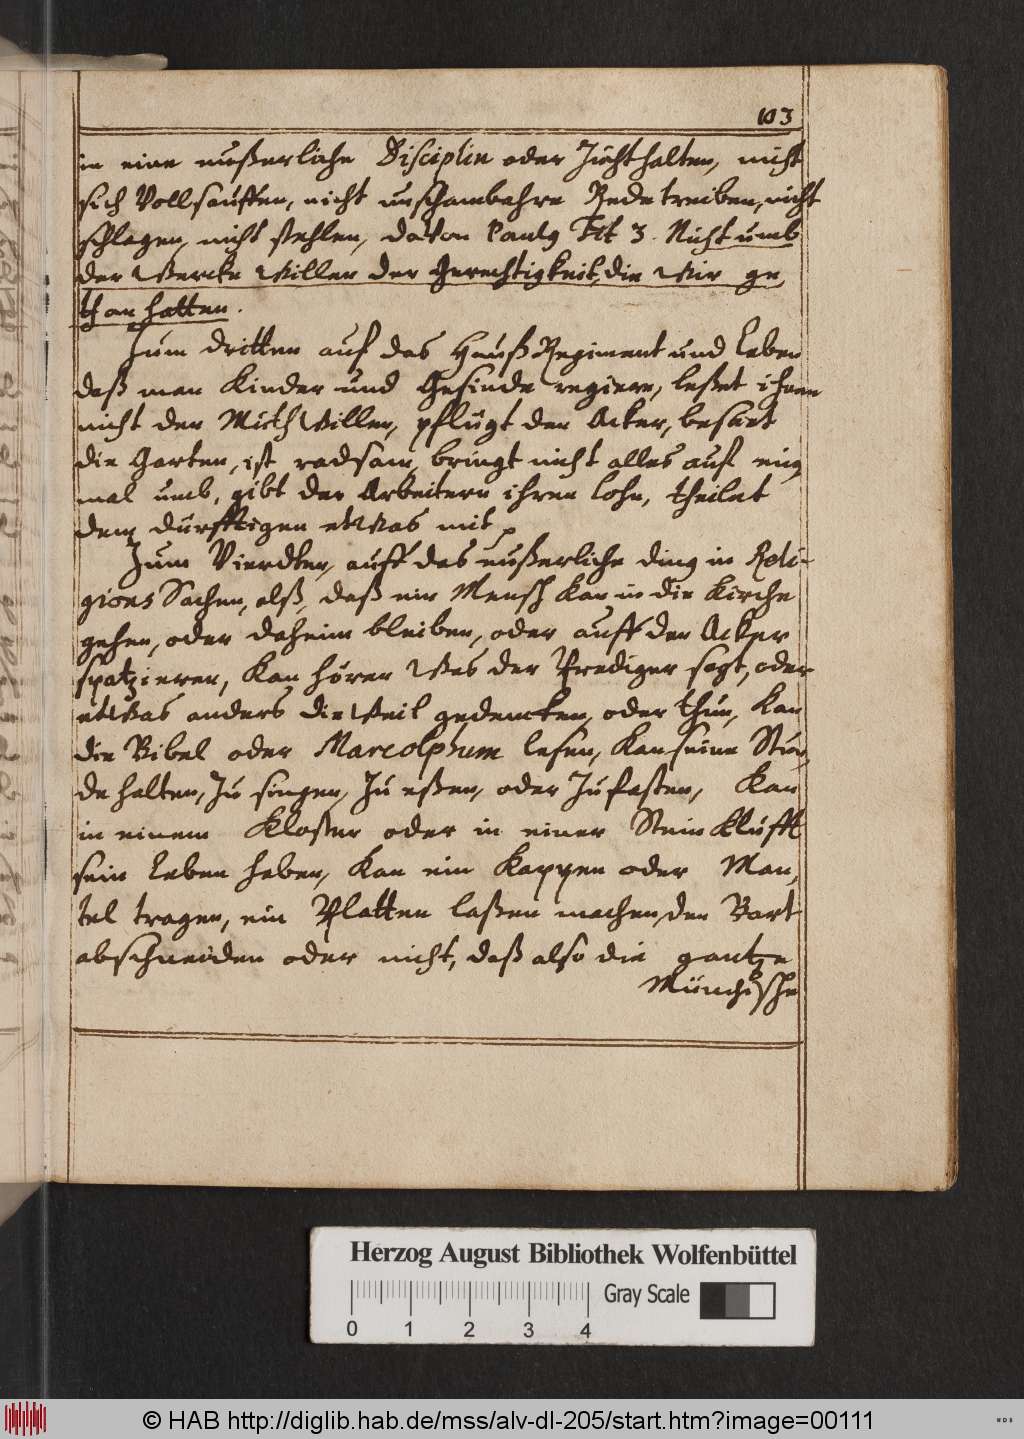 103
in eine eußerliche Disciplin oder Zücht halten, nicht
sich Vollsauffen, nicht unschambahre Rede treiben, nicht
schlagen, nicht stehlen, davon Paulus Tit 3. Nicht umb
der Wercke Willen der Gerechtigkeit, die Wir ge,
than hatten.
Zum dritten auf das Hauß Regiment und Leben
daß man Kinder und Gesinde regiere, leßet ihnen
nicht den MüthWillen, pflügt den Acker, besäet
die Garten, ist radsam, bringt nicht alles auf ein,
mal umb, gibt den Arbeitern ihren lohn, theilet
dem dürfftigen etWas mit.
Zum Vierdten, auff das eußerliche ding in Reli-
gions Sachen, alß, daß ein Mensch kan in die Kirche
gehen, oder daheim bleiben, oder auff den Acker
spatzieren, kan hören Was der Prediger sagt, oder
etWas anders dieWeil gedencken, oder thun, kan
die Bibel oder Marcolphum lesen, kan seine Stün,
de halten, Zu singen, Zu eßen, oder Zu fasten, kan
in einem Kloster oder in einer Stein Klüfft
sein Leben haben, kan ein Kappen oder Man,
tel tragen, ein Platten laßen machen, den Bart
abschneiden oder nicht, daß also die gantze
Münchische
Herzog August Bibliothek Wolfenbüttel
Gray Scale
0 1 2 3 4
© HAB http://diglib.hab.de/mss/alv-dl-205/start.htm?image=00111